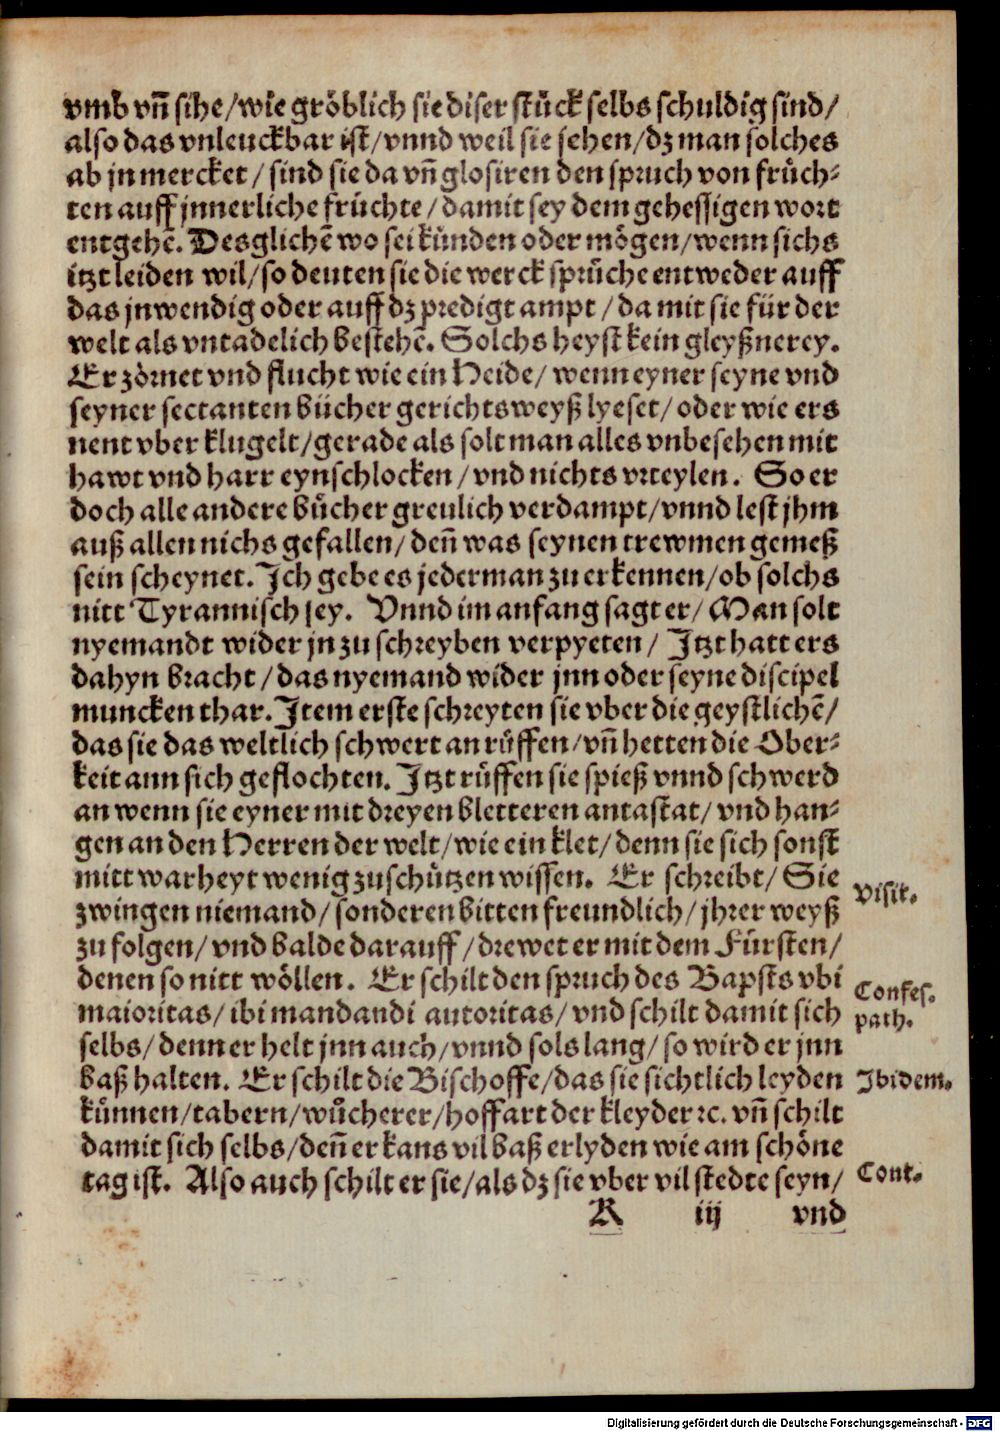 vmb vñ sihe/wie gröblich sie diser stůck selbs schuldig sind/
also das vnleuckbar ist/vnnd weil sie sehen/dz man solches
ab jn mercket/sind sie da vñ glosiren den spruch von früch-
ten auff jnnerliche früchte/damit sey dem gehessigen wort
entgehē. Desglichē wo sei kůnden oder mögen/wenn sichs
itzt leiden wil/so deuten sie die werck sprůche entweder auff
das jnwendig oder auff dz predigt ampt/da mit sie für der
welt als vntadelich bestehē. Solchs heyst kein gleyßnerey.
Er zörnet vnd flucht wie ein Heide/wenn eyner seyne vnd
seyner sectanten bücher gerichtsweyß lyeset/oder wie ers
nent vber klugelt/gerade als solt man alles vnbesehen mit
hawt vnd harr eynschlocken/vnd nichts vrteylen. So er
doch alle andere bůcher greulich verdampt/vnnd lest jhm
auß allen nichs gefallen/deñ was seynen trewmen gemeß
sein scheynet. Ich gebe es jederman zu erkennen/ob solchs
nitt Tyrannisch sey. Vnnd im anfang sagt er/Man solt
nyemandt wider jn zu schreyben verpyeten/Itzt hatt ers
dahyn bracht/das nyemand wider jnn oder seyne discipel
muncken thar. Item erste schreyten sie vber die geystlichē/
das sie das weltlich schwert an růffen/vñ hetten die Ober-
keit ann sich geflochten. Itzt růffen sie spieß vnnd schwerd
an wenn sie eyner mit dreyen bletteren antastat/vnd han-
gen an den Herren der welt/wie ein klet/denn sie sich sonst
mitt warheyt wenig zu schůtzen wissen. Er schreibt/Sie
zwingen niemand/sonderen bitten freundlich/jhrer weyß
zu folgen/vnd balde darauff/drewet er mit dem Fürsten/
denen so nitt wöllen. Er schilt den spruch des Bapsts vbi
maioritas/ibi mandandi autoritas/vnd schilt damit sich
selbs/denn er helt jnn auch/vnnd sols lang/so wird er jnn
baß halten. Er schilt die Bischoffe/das sie sichtlich leyden
künnen/tabern/wůcherer/hoffart der kleyder ꝛc. vñ schilt
damit sich selbs/deñ er kans vil baß erlyden wie am schöne
tag ist. Also auch schilt er sie/als dz sie vber vil stedte seyn/
R iij vnd
Visit.
Confes.
path.
Ibidem.
Cont.
Digitalisierung gefördert durch die Deutsche Forschungsgemeinschaft - DFG